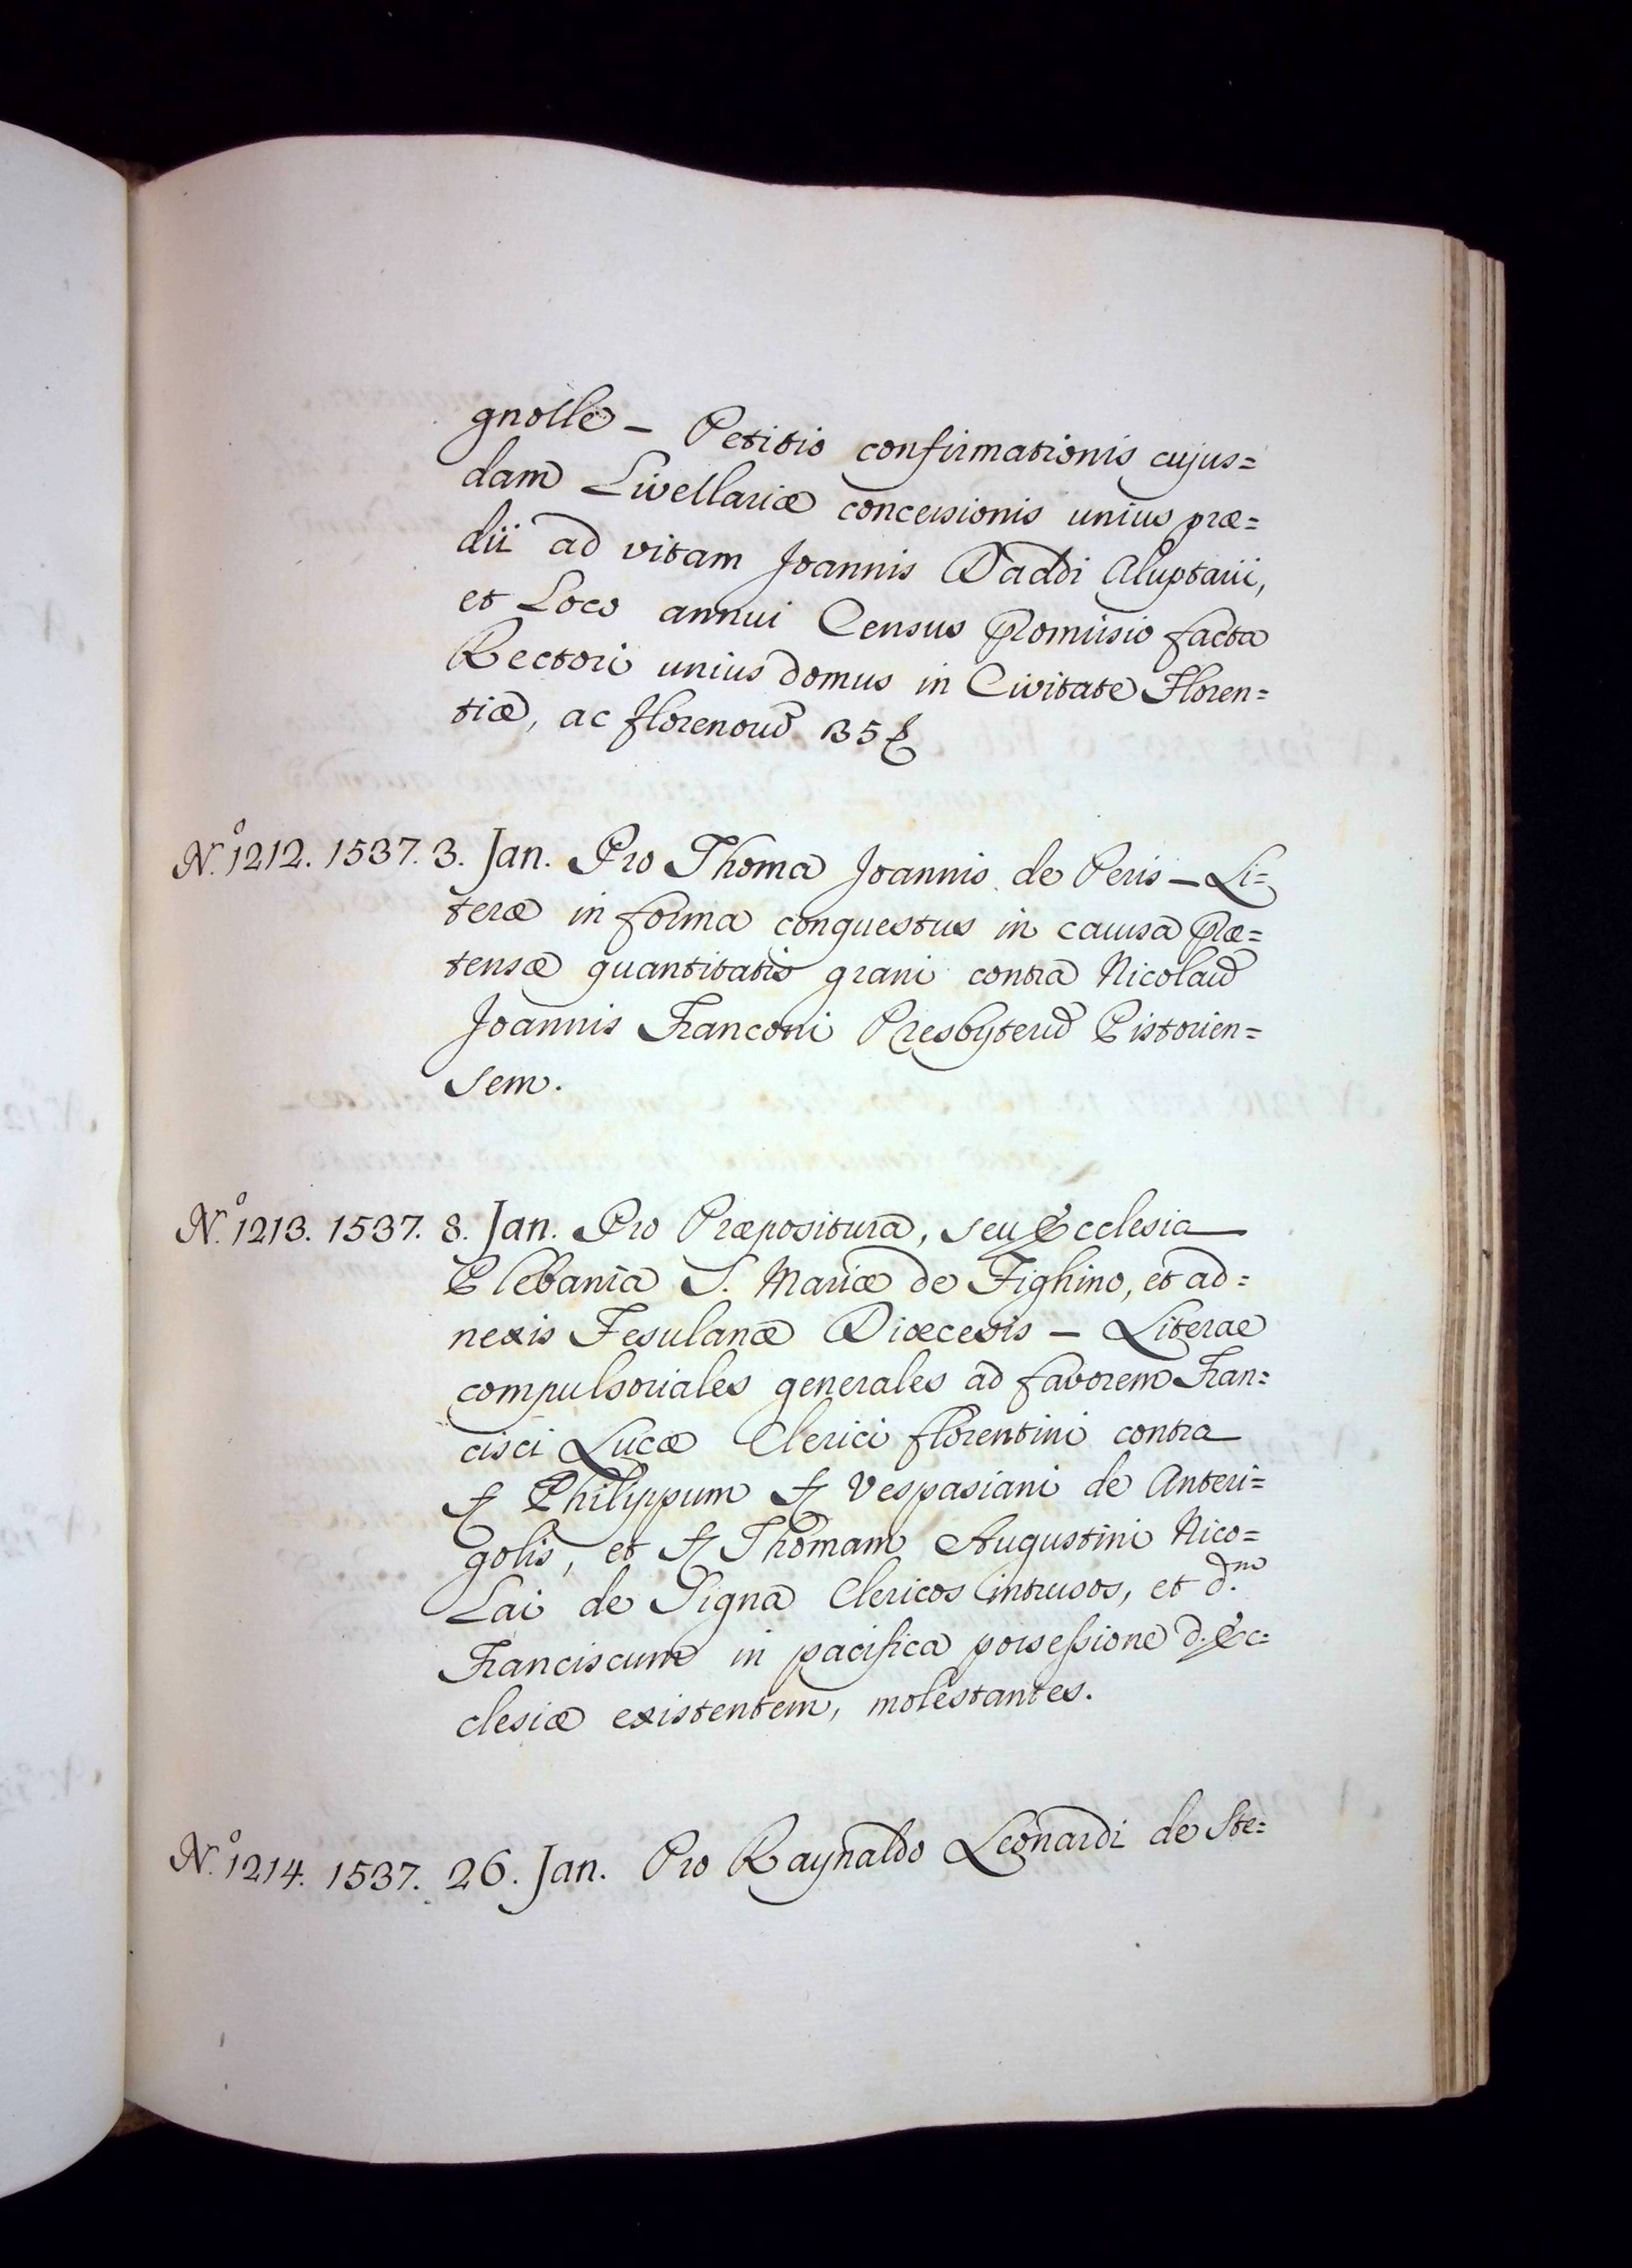 gnolle – Petitio confirmationis cujus=
dam Livellariæ concessionis unius præ=
dii ad vitam Joannis Daddi Aluptarii,
et Loco annui Census Promissio facta
Rectori unius domus in Civitate Floren=
tiæ, ac florenorũ 135
N.º 1212. 1537. 3. Jan. Pro Thoma Joannis de Peris – Li=
teræ in forma conquestus in caussa Præ=
tensæ quantitatis grani contra Nicolaũ
Joannis Franconi Presbyterũ Pistorien=
sem.
N.º 1213. 1537. 8. Jan. Pro Præpositura, seu Ecclesia
Plebania S. Mariæ de Fighino, et ad=
nexis Fesulanæ Diœcesis – Literae
compulsoriales generales ad favorem Fran=
cisci Lucæ Clerici florentini contra
Philippum Vespasiani de Anteri=
golis, et Thomam Augustini Nico=
Lai de Signa Clericos intrusos, et d.m
Franciscum in pacifica possessione d. Ec=
clesiæ existentem, molestantes.
N.º 1214. 1537. 26. Jan. Pro Raynaldo Leonardi de Ste=